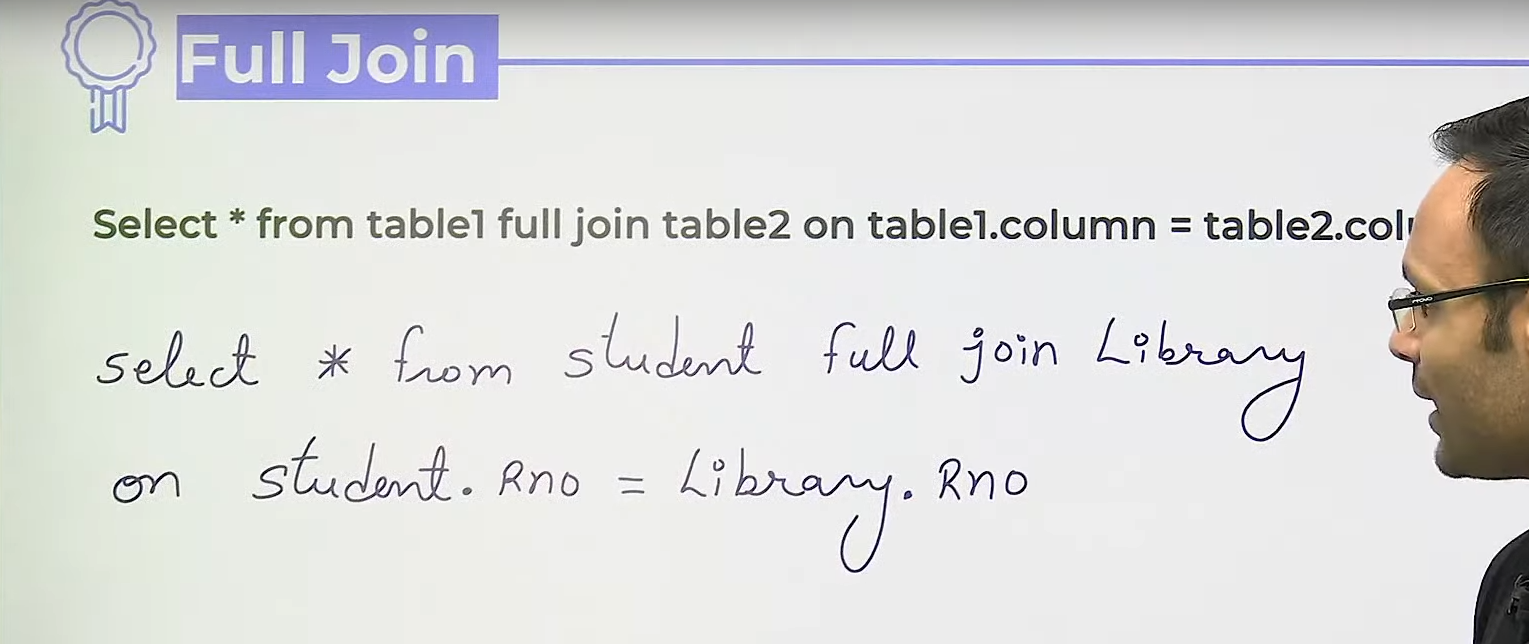 Full Join
Select * from table1 full join table2 on table1.column =
select * from student full join Library
on student. Rno = Library. Rno